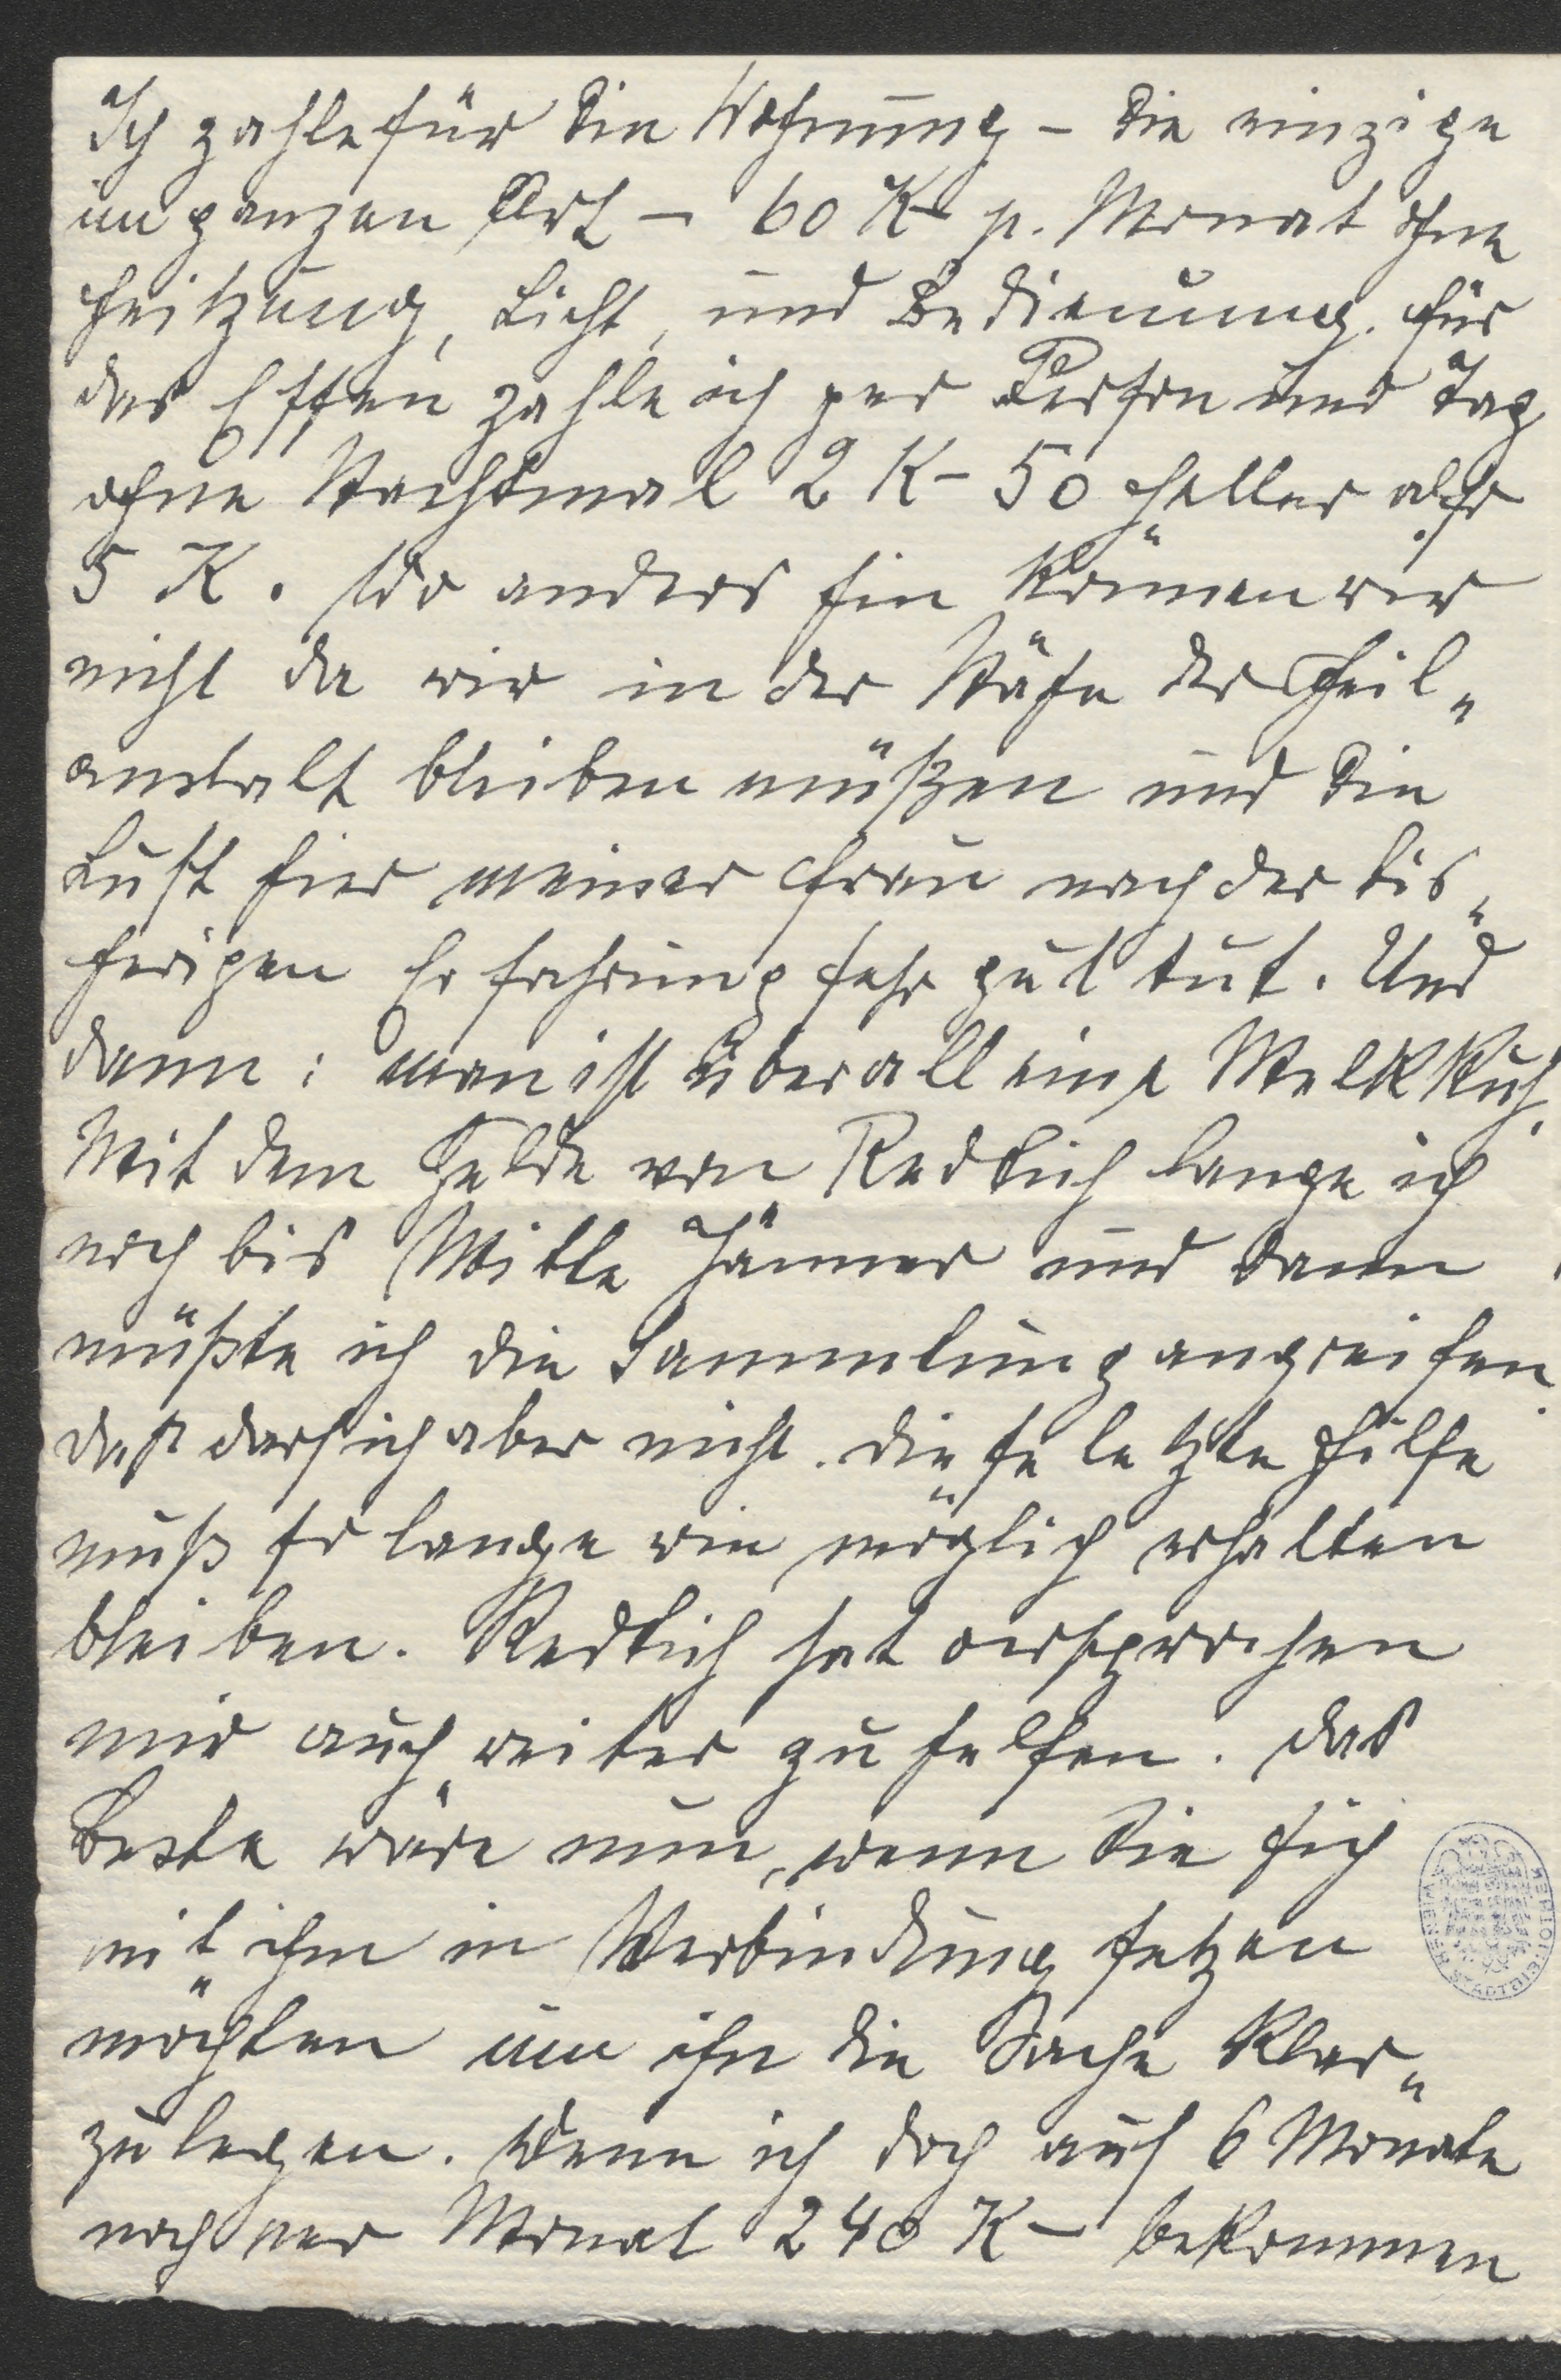 Ich zahle für die Wohnung – die einzige
im ganzen Ort – 60 K p. Monat ohne
Heitzung, Licht, und Bedienung. Für
das Essen zahle ich per Person und Tag
ohne Nachtmal 2 K – 50 Heller also
5 K. Wo anders hin können wir
nicht da wir in der Nähe der Heil„
anstalt bleiben müßen und die
Luft hier meiner Frau nach der bis„
herigen Erfahrung sehr gut tut. Und
dann: man ist überall eine Melkkuh.
Mit dem Gelde von Redlich lange ich
noch bis Mitte Jänner und dann
müßte ich die Sammlung angreifen.
daß darf ich aber nicht. Diese letzte Hilfe
muß so lange wie möglich erhalten
bleiben. Redlich hat versprochen
mir auch weiter zu helfen. Das
Beste wäre nun, wenn Sie sich
mit ihm in Verbindung setzen
möchten um ihn die Sache klar„
zulegen. Wenn ich doch auf 6 Monate
noch per Monat 240 K – bekommen
WIENER STADTBIBLIOTHEK